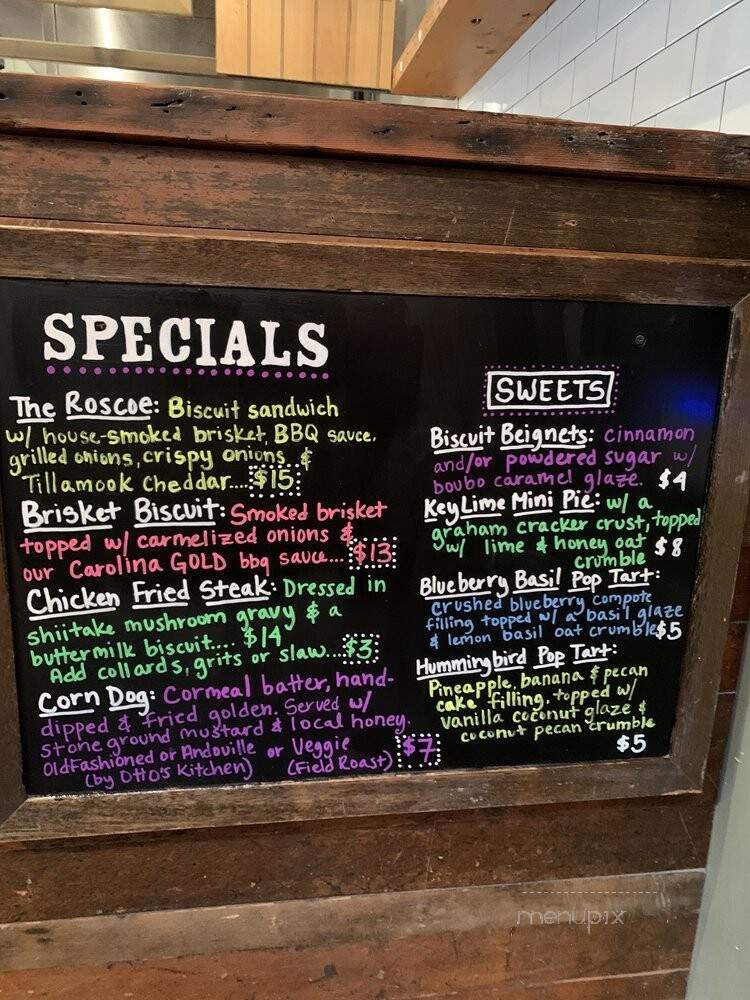 SPECIALS
The Roscoe: Biscuit sandwich
w/ house-smoked brisket, BBQ sauce,
grilled onions, crispy onions &
Tillamook Cheddar....$15
Brisket Biscuit: Smoked brisket
topped w/ carmelized onions &
our Carolina GOLD bbq sauce....$13
Chicken Fried Steak: Dressed in
shiitake mushroom gravy & a
buttermilk biscuit.... $14
Add collards, grits or slaw...$3
Corn Dog: Cormeal batter, hand-
dipped & fried golden. Served w/
stone ground mustard & local honey.
Old Fashioned or Andouille or Veggie
(by OTTO's Kitchen) (Field Roast) $7
SWEETS
Biscuit Beignets: cinnamon
and/or powdered sugar w/
boubo caramel glaze. $4
Key Lime Mini Pie: w/ a
graham cracker crust, topped
w/ lime & honey oat
crumble $8
Blueberry Basil Pop Tart:
crushed blueberry compote
filling topped w/ a basil glaze
& lemon basil oat crumble $5
Hummingbird Pop Tart:
Pineapple, banana & pecan
cake filling, topped w/
vanilla coconut glaze &
coconut pecan crumble
$5
menupix